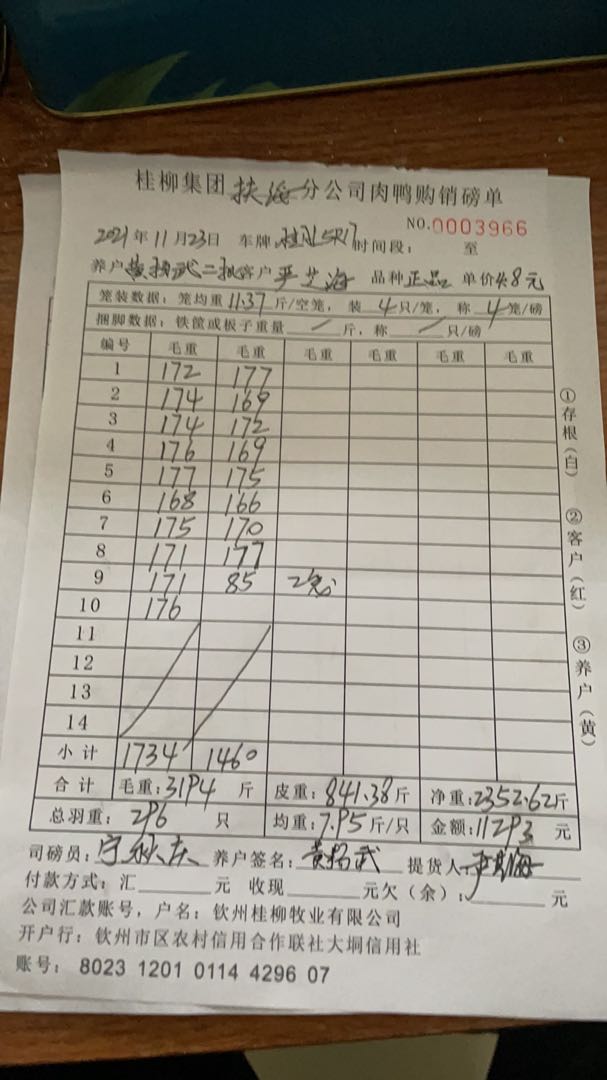 桂柳集团扶绥分公司肉鸭购销磅单
NO.0003966
2021年11月23日 车牌 时间段： 至
养户黄扬武二批客户严芝海 品种正品 单价4.8元
笼装数据：笼均重11.37斤/空笼，装4只/笼，称4笼/磅
捆脚数据：铁筐或板子重量/斤，称/只/磅
编号 毛重 毛重 毛重 毛重 毛重 毛重
1 172 177
2 174 169
3 174 172
4 176 169
5 177 175
6 168 166
7 175 170
8 171 177
9 171 85 2笼
10 176
11
12
13
14
小计 1734 1460
合计 毛重：3194斤 皮重：841.38斤 净重：2352.62斤
总羽重：296只 均重：7.95斤/只 金额：11293元
司磅员： 养户签名：黄扬武 提货人：
付款方式：汇 元 收现 元欠（余）： 元
公司汇款账号，户名：钦州桂柳牧业有限公司
开户行：钦州市区农村信用合作联社大垌信用社
账号：8023 1201 0114 4296 07
①存根（白）
②客户（红）
③养户（黄）